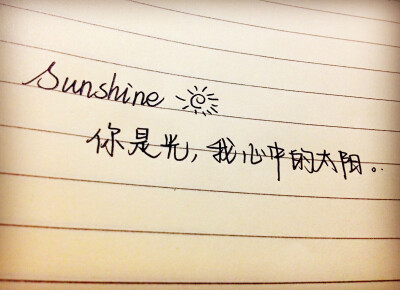 Sunshine
你是光，我心中的太阳。.